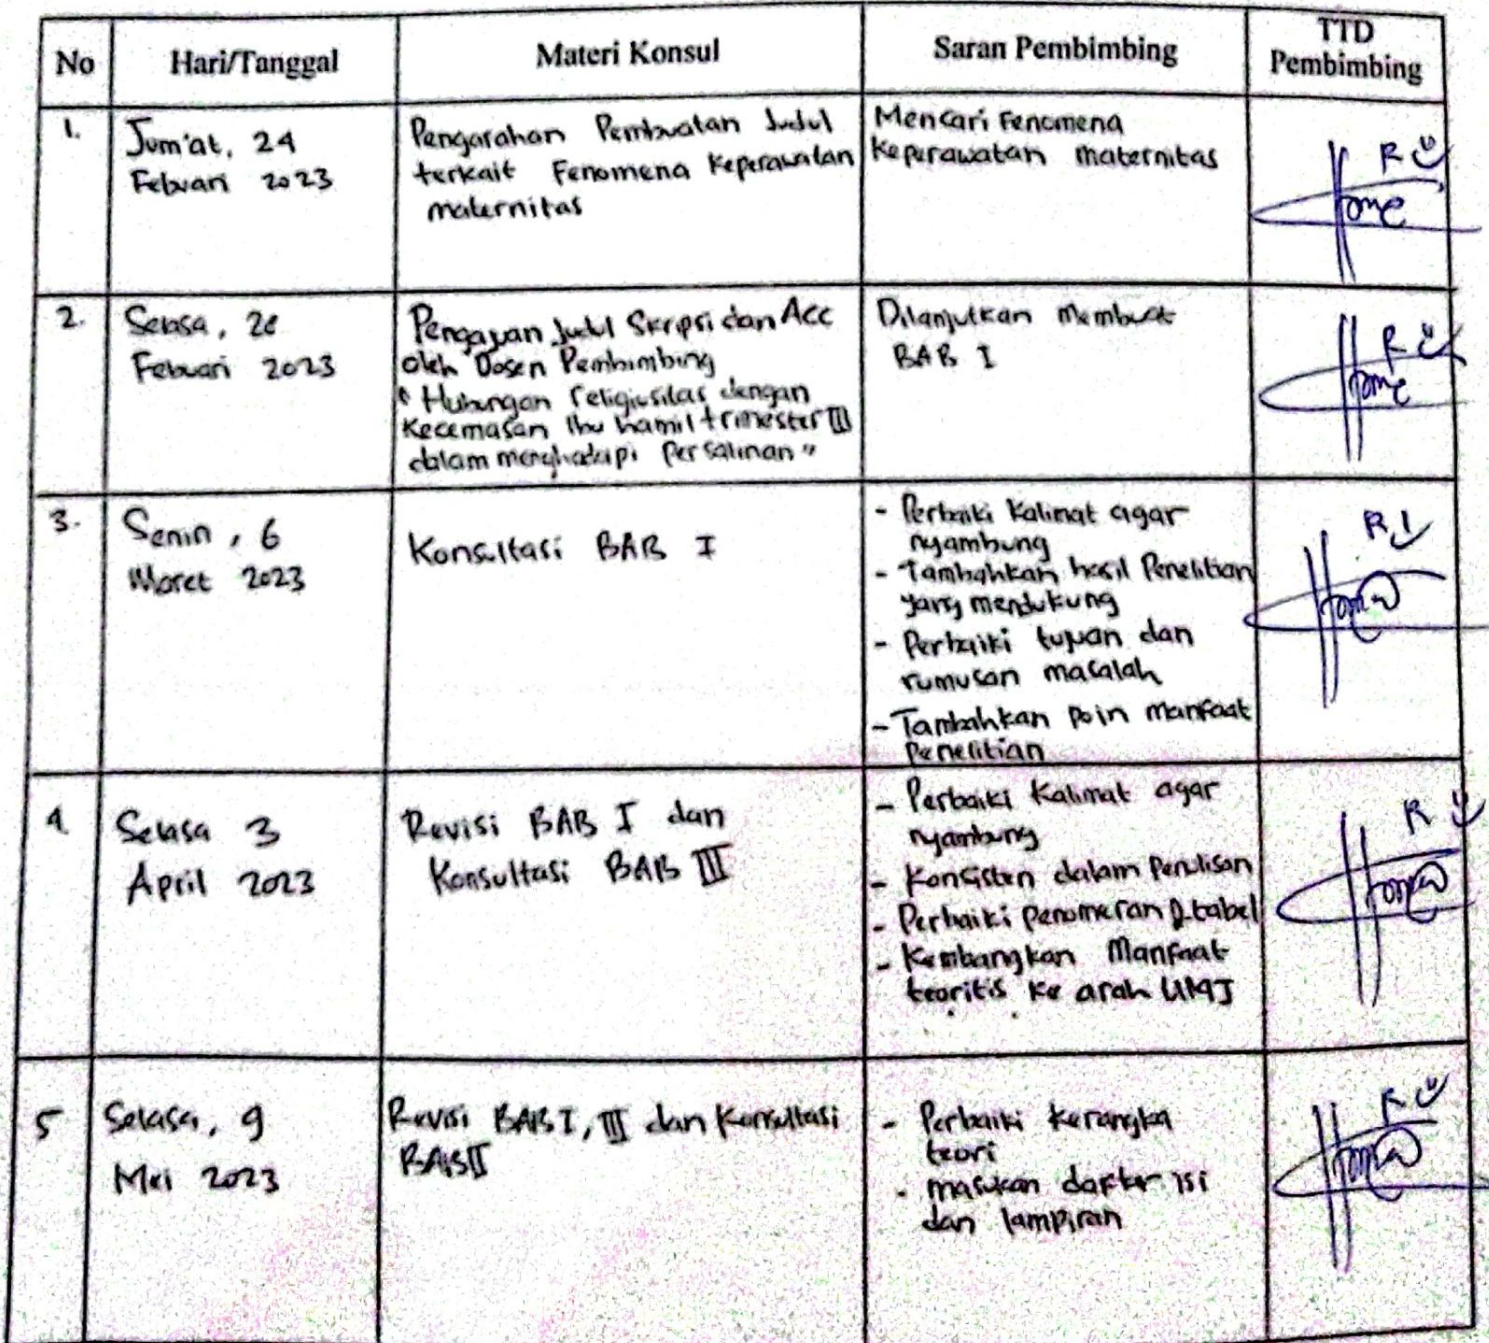 No Hari/Tanggal Materi Konsul Saran Pembimbing TTD Pembimbing
1.
Jum'at, 24
Febuari 2023
Pengarahan Pembuatan Judul
terkait Fenomena Keperawatan
maternitas
Mencari Fenomena
Keperawatan maternitas
2.
Selasa, 28
Febuari 2023
Pengajuan Judul Skripsi dan Acc
oleh Dosen Pembimbing
" Hubungan religiusitas dengan
Kecemasan Ibu hamil trimester III
dalam menghadapi Persalinan "
Dilanjutkan Membuat
BAB I
3.
Senin, 6
Maret 2023
Konsultasi BAB I
- Perbaiki Kalimat agar
nyambung
- Tambahkan hasil Penelitian
yang mendukung
- Perbaiki tujuan dan
rumusan masalah
- Tambahkan Poin manfaat
Penelitian
4.
Selasa 3
April 2023
Revisi BAB I dan
Konsultasi BAB III
- Perbaiki Kalimat agar
nyambung
- Konsisten dalam Penulisan
- Perbaiki penomeran & tabel
- Kembangkan Manfaat
teoritis ke arah UMJ
5
Selasa, 9
Mei 2023
Revisi BAB I, III dan Konsultasi
BAB II
- Perbaiki Kerangka
teori
- masukan daftar isi
dan lampiran